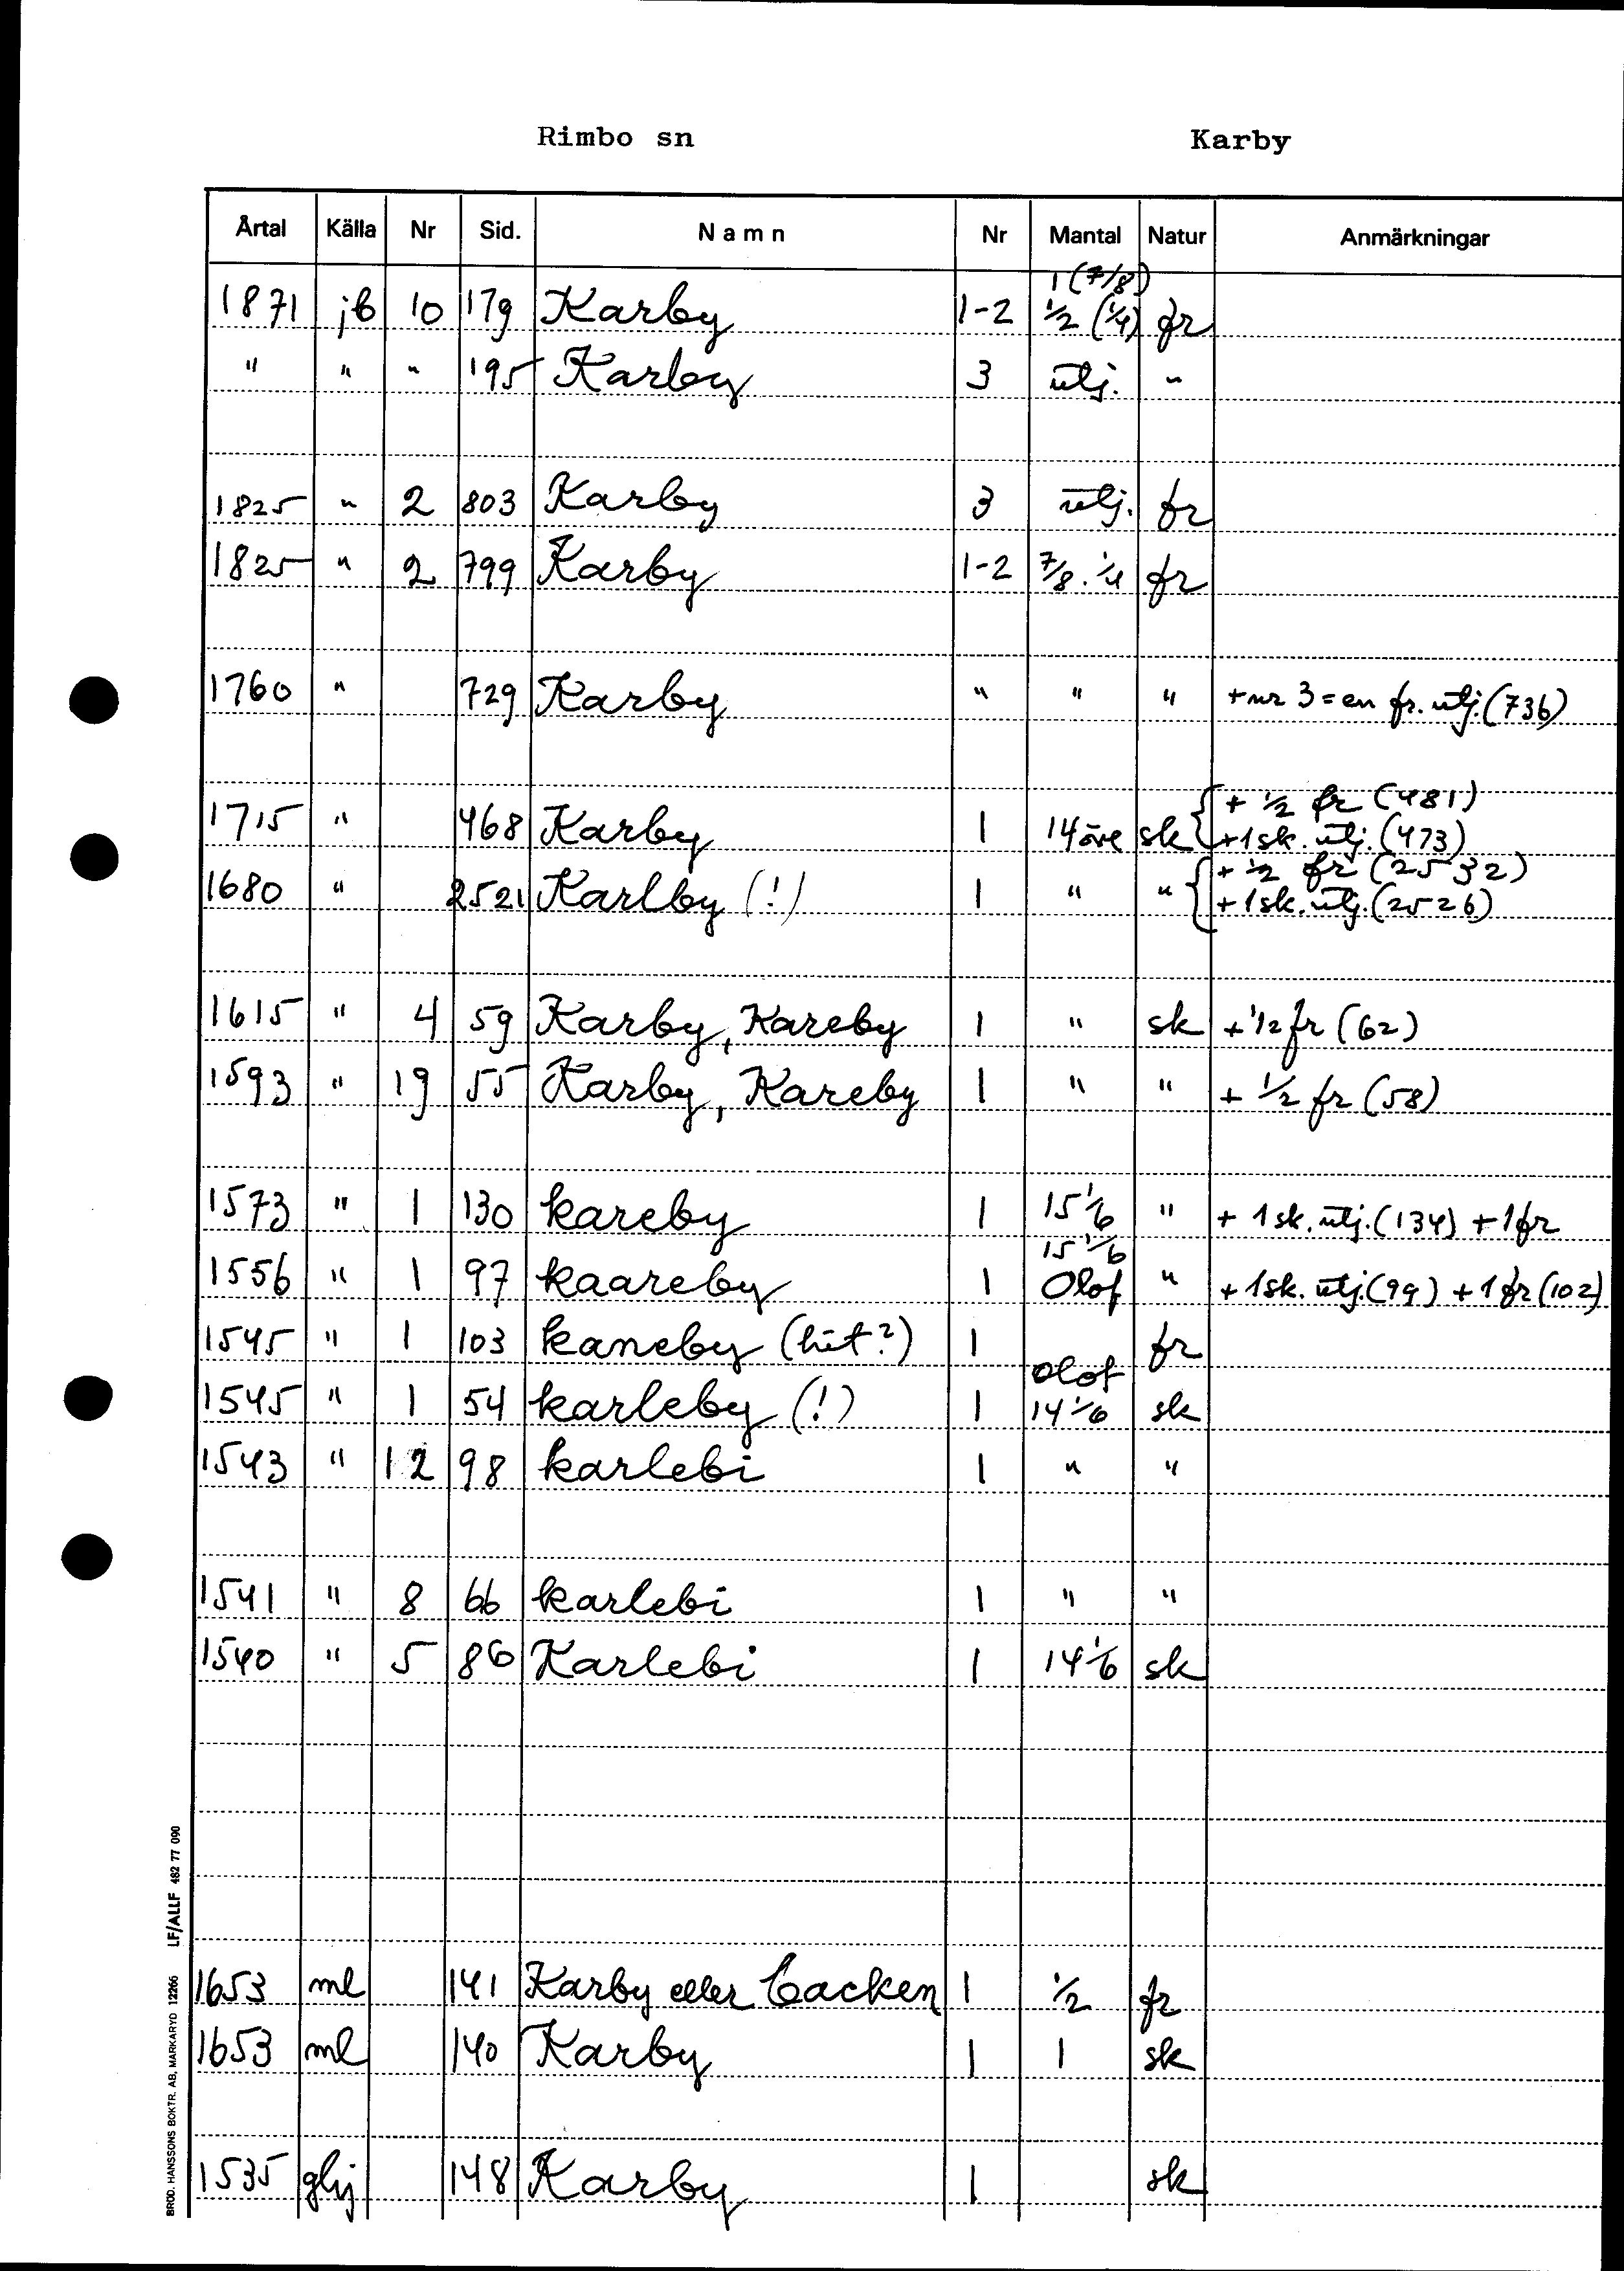 Rimbo sn Karby
Årtal Källa Nr Sid. Namn Nr Mantal Natur Anmärkningar
1 (7/8)
1871 jb 10 179 Karby 1-2 1/2 (1/4) fr
" " " 195 Karby 3 utj. "
1825 " 2 803 Karby 3 utj. fr
1825 " 2 799 Karby 1-2 7/8. 1/4 fr
1760 " 729 Karby " " " + nr 3 = en fr. utj. (736)
+ 1/2 fr (481)
1715 " 468 Karby 1 14 öre sk { +1 sk. utj. (473)
+ 1/2 fr (2532)
1680 " 2521 Karlby (!) 1 " " { +1 sk. utj. (2526)
1615 " 4 59 Karby, Kareby 1 " sk + 1/2 fr (62)
1593 " 19 55 Karby, Kareby 1 " " + 1/2 fr (58)
1573 " 1 130 kareby 1 15 1/6 " + 1 sk. utj. (134) + 1 fr
15 1/6
1556 " 1 97 kaareby 1 Olof " + 1 sk. utj. (99) + 1 fr (102)
1545 " 1 103 kaneby (hit?) 1 fr
Olof
1545 " 1 54 karleby (!) 1 14 1/6 sk
1543 " 12 98 karlebi 1 " "
1541 " 8 66 karlebi 1 " "
1540 " 5 86 Karlebi 1 14 1/6 sk
1653 ml 141 Karby eller Backen 1 1/2 fr
1653 ml 140 Karby 1 1 sk
1535 glij 148 Karby 1 sk
BROD. HANSSONS BOKTR. AB, MARKARYD 12266 LF/ALLF 482 77 090